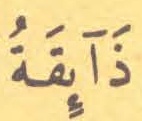 ذَآئِقَةُ